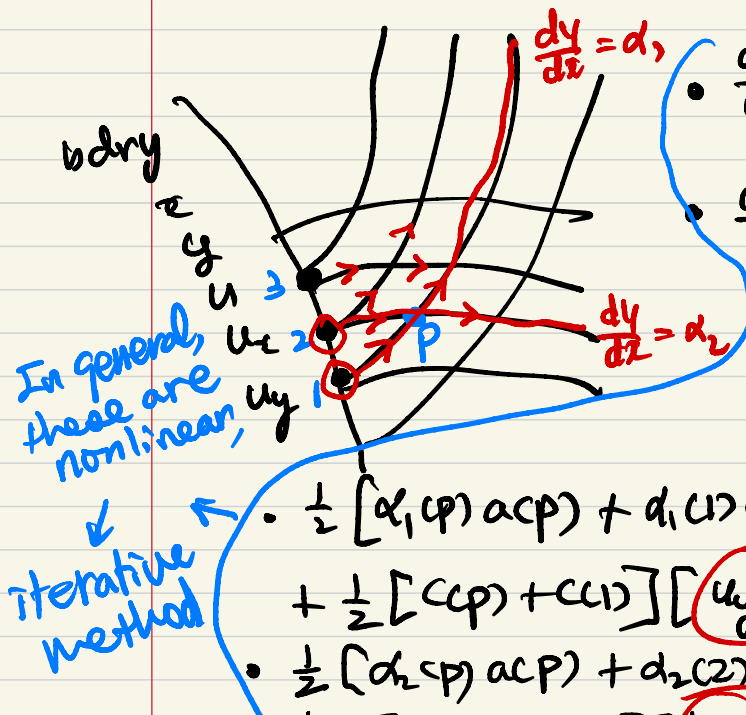 dy/dx = α₁
bdry
x
y
u
uₓ
u_y
3
2
1
p
dy/dx = α₂
In general,
these are
nonlinear,
iterative
method
• ½ [α₁(p) a(p) + α₁(1)
+ ½ [c(p) + c(1)] [
• ½ [α₂(p) a(p) + α₂(2)